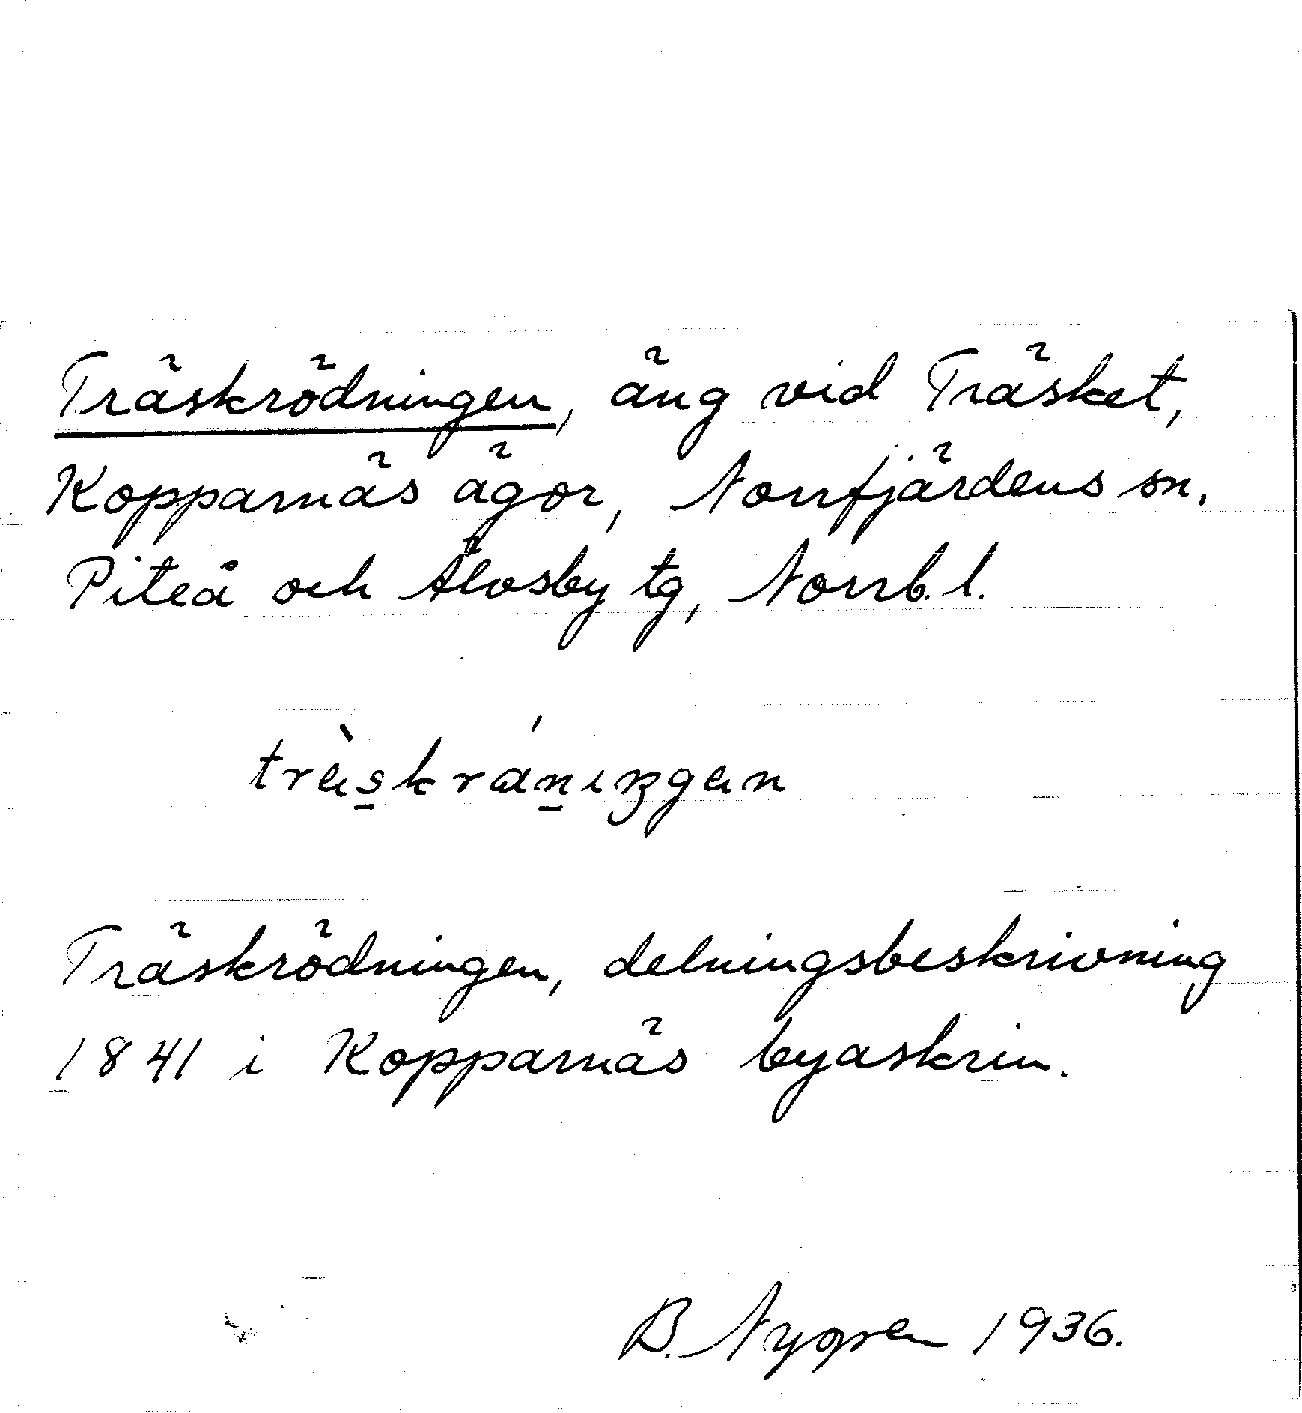 Träskrödningen, äng vid Träsket,
Kopparnäs ägor, Norrfjärdens sn.
Piteå och Älvsby tg, Norrb. l.
Träskrödningen, delningsbeskrivning
1841 i Kopparnäs byaskrin.
B. Nygren 1936.